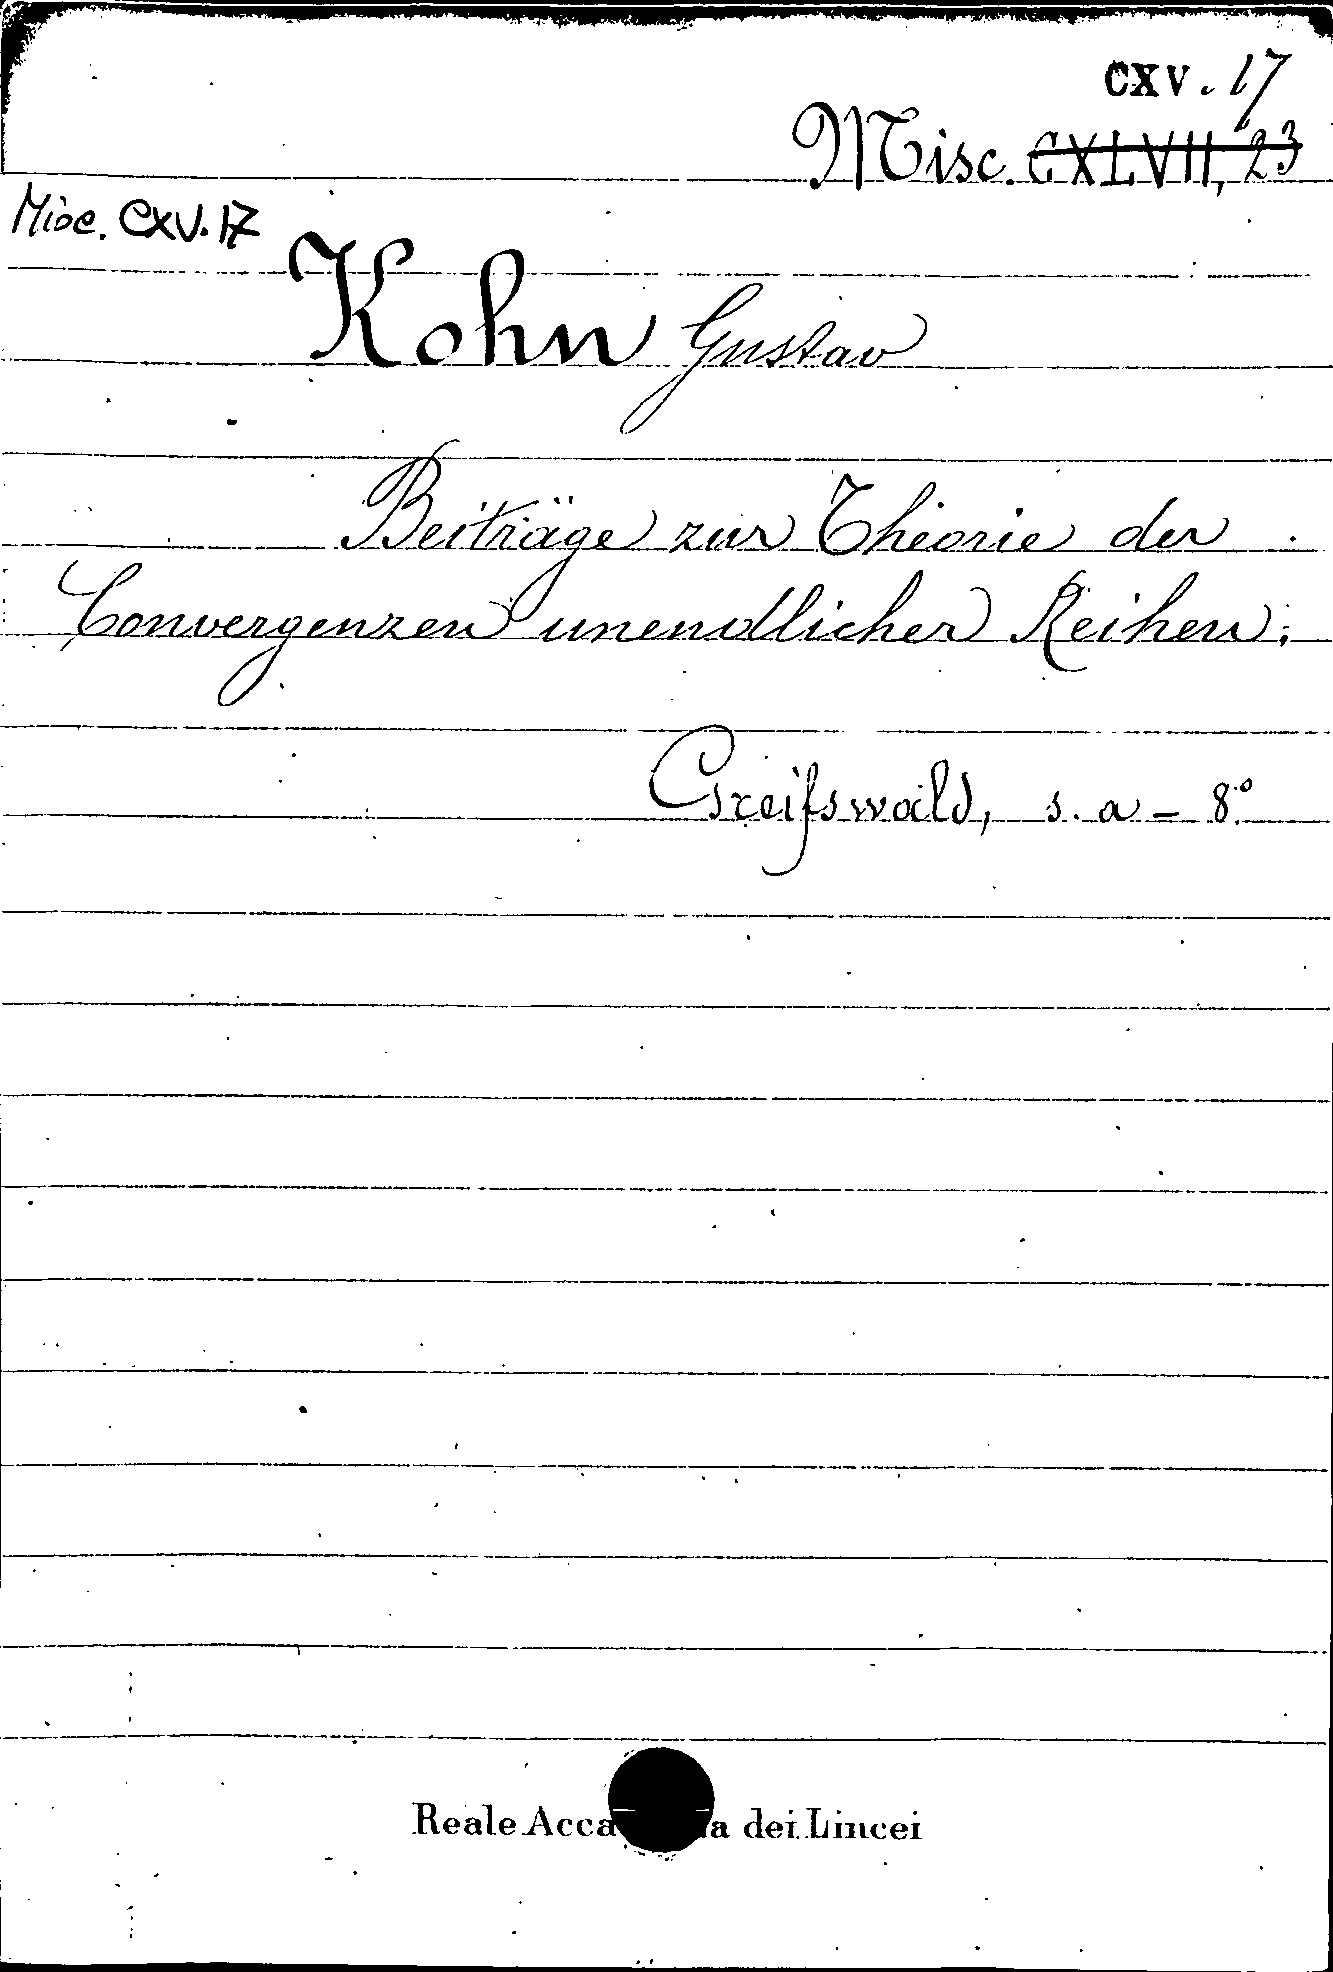 CXV. 17
Misc. CXLVII, 23
Misc. CXV. 17
Kohn Gustav
Beiträge zur Theorie der
Convergenzen unendlicher Reihen;
Greifswald, s. a - 8.°
Reale Acca a dei Lincei